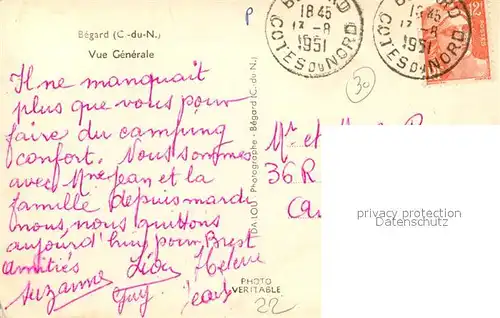 Bégard (C.-du-N.)
Vue Générale
Il ne manquait
plus que vous pour
faire du camping
confort. Nous sommes
avec Mme Jean et la
famille depuis mardi
nous, nous quittons
aujourd'hui pour Brest
amitiés
Suzanne Hélène
Guy Jean
PHOTO
VERITABLE
22
Photographe - Bégard (C.-du-N.)
P
18 45
13 - 8
1951
COTES DU NORD
18 45
1951
COTES DU NORD
12F
POSTES
30
Mr et
36 R
privacy protection
Datenschutz